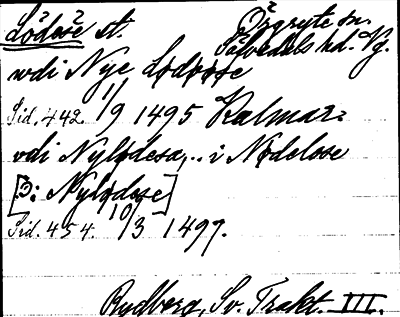 Lödese st. Örgryte sn.
Sävedals hd. Vg.
vdi Nye Lødøse
Sid. 442. 11/9 1495 Kalmar.
vdi Nylødesa... i Nødeløse
[3: Nylødose]
Sid. 454. 10/3 1497.
Rydberg, Sv. Trakt. III.